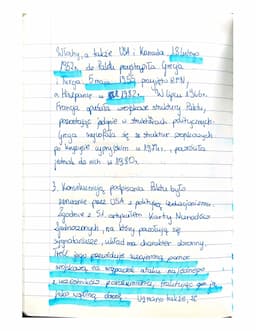 Włochy, a także USA i Kanada. 18 lutego
1952r. do Paktu przystąpiła Grecja
i Turcja. 5 maja 1955 przyjęto RFN,
a Hiszpanię w 1982r. W lipcu 1966r.
Francja opuściła wojskowe struktury Paktu,
pozostając jedynie w strukturach politycznych.
Grecja wycofała się ze struktur wojskowych
po kryzysie cypryjskim w 1974r., powróciła
jednak do nich w 1980r.
3. Konsekwencją podpisania Paktu było
zerwanie przez USA z polityką izolacjonizmu.
Zgodnie z 51. artykułem Karty Narodów
Zjednoczonych, na który powołują się
sygnatariusze, układ ma charakter obronny.
Treść jego przewiduje wzajemną pomoc
wojskową na wypadek ataku na jednego
z uczestników porozumienia, traktując go
jako wspólną obronę. Uznano także, że